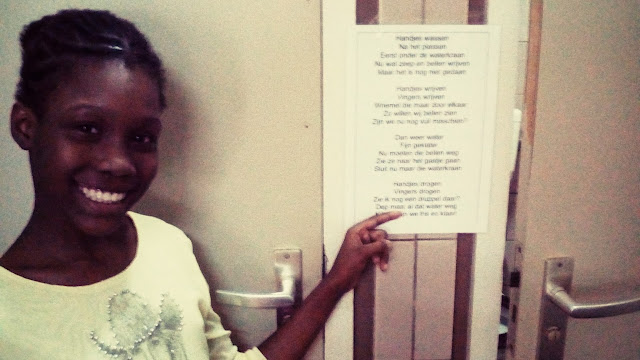 Handjes wassen
Na het plassen
Eerst onder de waterkraan
Nu wat zeep en bellen wrijven
Maar het is nog niet gedaan
Handjes wrijven
Vingers wrijven
Wriemel die maar door elkaar
Zo willen wij bellen zien
Zijn we nu nog vuil misschien?
Dan weer water
Fijn geklater
Nu moeten die bellen weg
Zie ze naar het gaatje gaan
Sluit nu maar die waterkraan
Handjes drogen
Vingers drogen
Zie ik nog een druppel daar?
Dep maar al dat water weg
we fris en klaar!